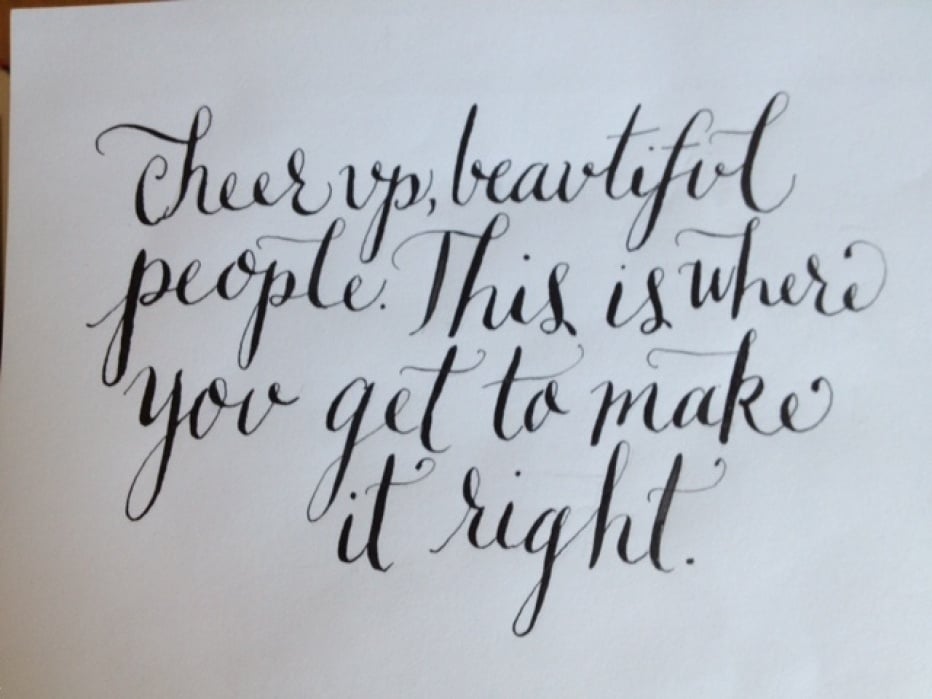 Cheer up, beautiful
people. This is where
you get to make
it right.